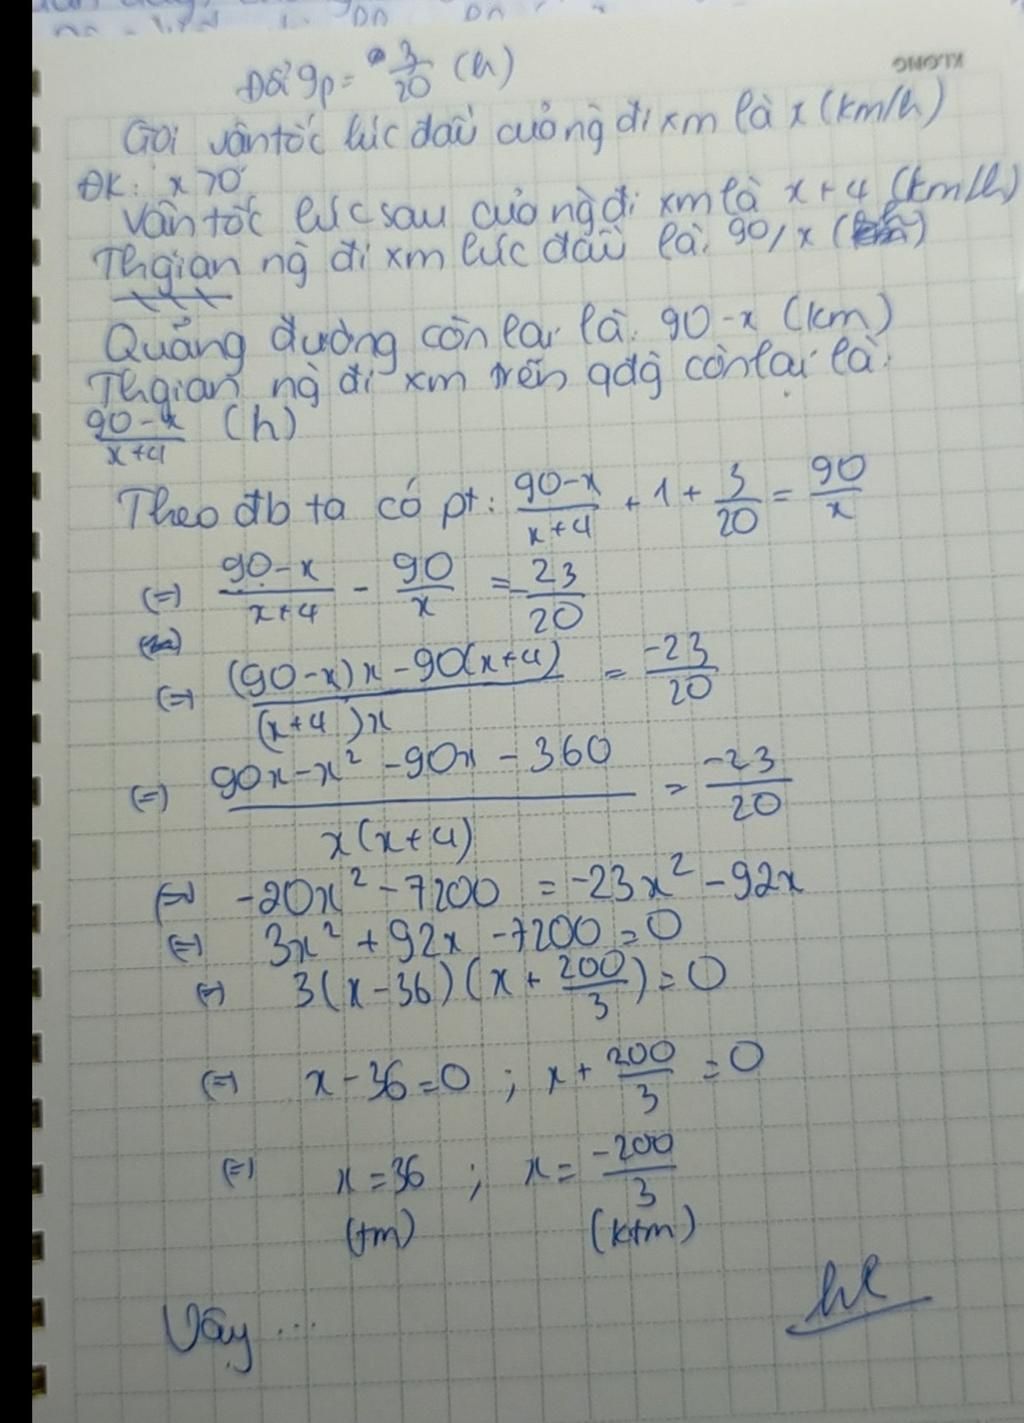 KLONG
Đổi 9p = 3/20 (h)
Gọi vận tốc lúc đầu của ng đi xm là x (km/h)
ĐK: x > 0
Vận tốc lúc sau của ng đi xm là x + 4 (km/h)
Thgian ng đi xm lúc đầu là: 90/x (h)
Quảng đường còn lại là: 90 - x (km)
Thgian ng đi xm trên qđg còn lại là:
(90 - x)/(x + 4) (h)
Theo đb ta có pt: (90 - x)/(x + 4) + 1 + 3/20 = 90/x
(=) (90 - x)/(x + 4) - 90/x = -23/20
(=) ((90 - x)x - 90(x + 4))/((x + 4)x) = -23/20
(=) (90x - x² - 90x - 360)/(x(x + 4)) = -23/20
(=) -20x² - 7200 = -23x² - 92x
(=) 3x² + 92x - 7200 = 0
(=) 3(x - 36)(x + 200/3) = 0
(=) x - 36 = 0 ; x + 200/3 = 0
(=) x = 36 ; x = -200/3
(tm) (ktm)
Vậy ...